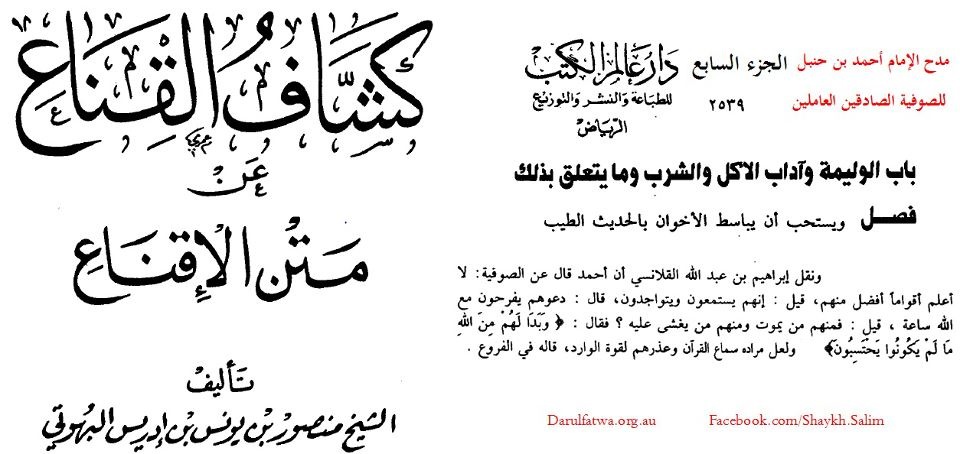 كشَّاف القِنَاع
عَنْ
مَتْن الإقنَاع
تأليف
الشيخ منصور بن يونس بن إدريس البهوتي
مدح الإمام أحمد بن حنبل
للصوفية الصادقين العاملين
الجزء السابع
٢٥٣٩
دار عالم الكتب
للطباعة والنشر والتوزيع
الرياض
باب الوليمة وآداب الاكل والشرب وما يتعلق بذلك
فصل ويستحب أن يباسط الأخوان بالحديث الطيب
ونقل إبراهيم بن عبد الله القلانسي أن أحمد قال عن الصوفية: لا
أعلم أقواماً أفضل منهم، قيل : إنهم يستمعون ويتواجدون، قال : دعوهم يفرحون مع
الله ساعة ، قيل : فمنهم من يموت ومنهم من يغشى عليه ؟ فقال : ﴿ وَبَدَا لَهُمْ مِنَ اللهِ
مَا لَمْ يَكُونُوا يَحْتَسِبُونَ﴾ ولعل مراده سماع القرآن وعذرهم لقوة الوارد، قاله في الفروع .
Darulfatwa.org.au
Facebook.com/Shaykh.Salim